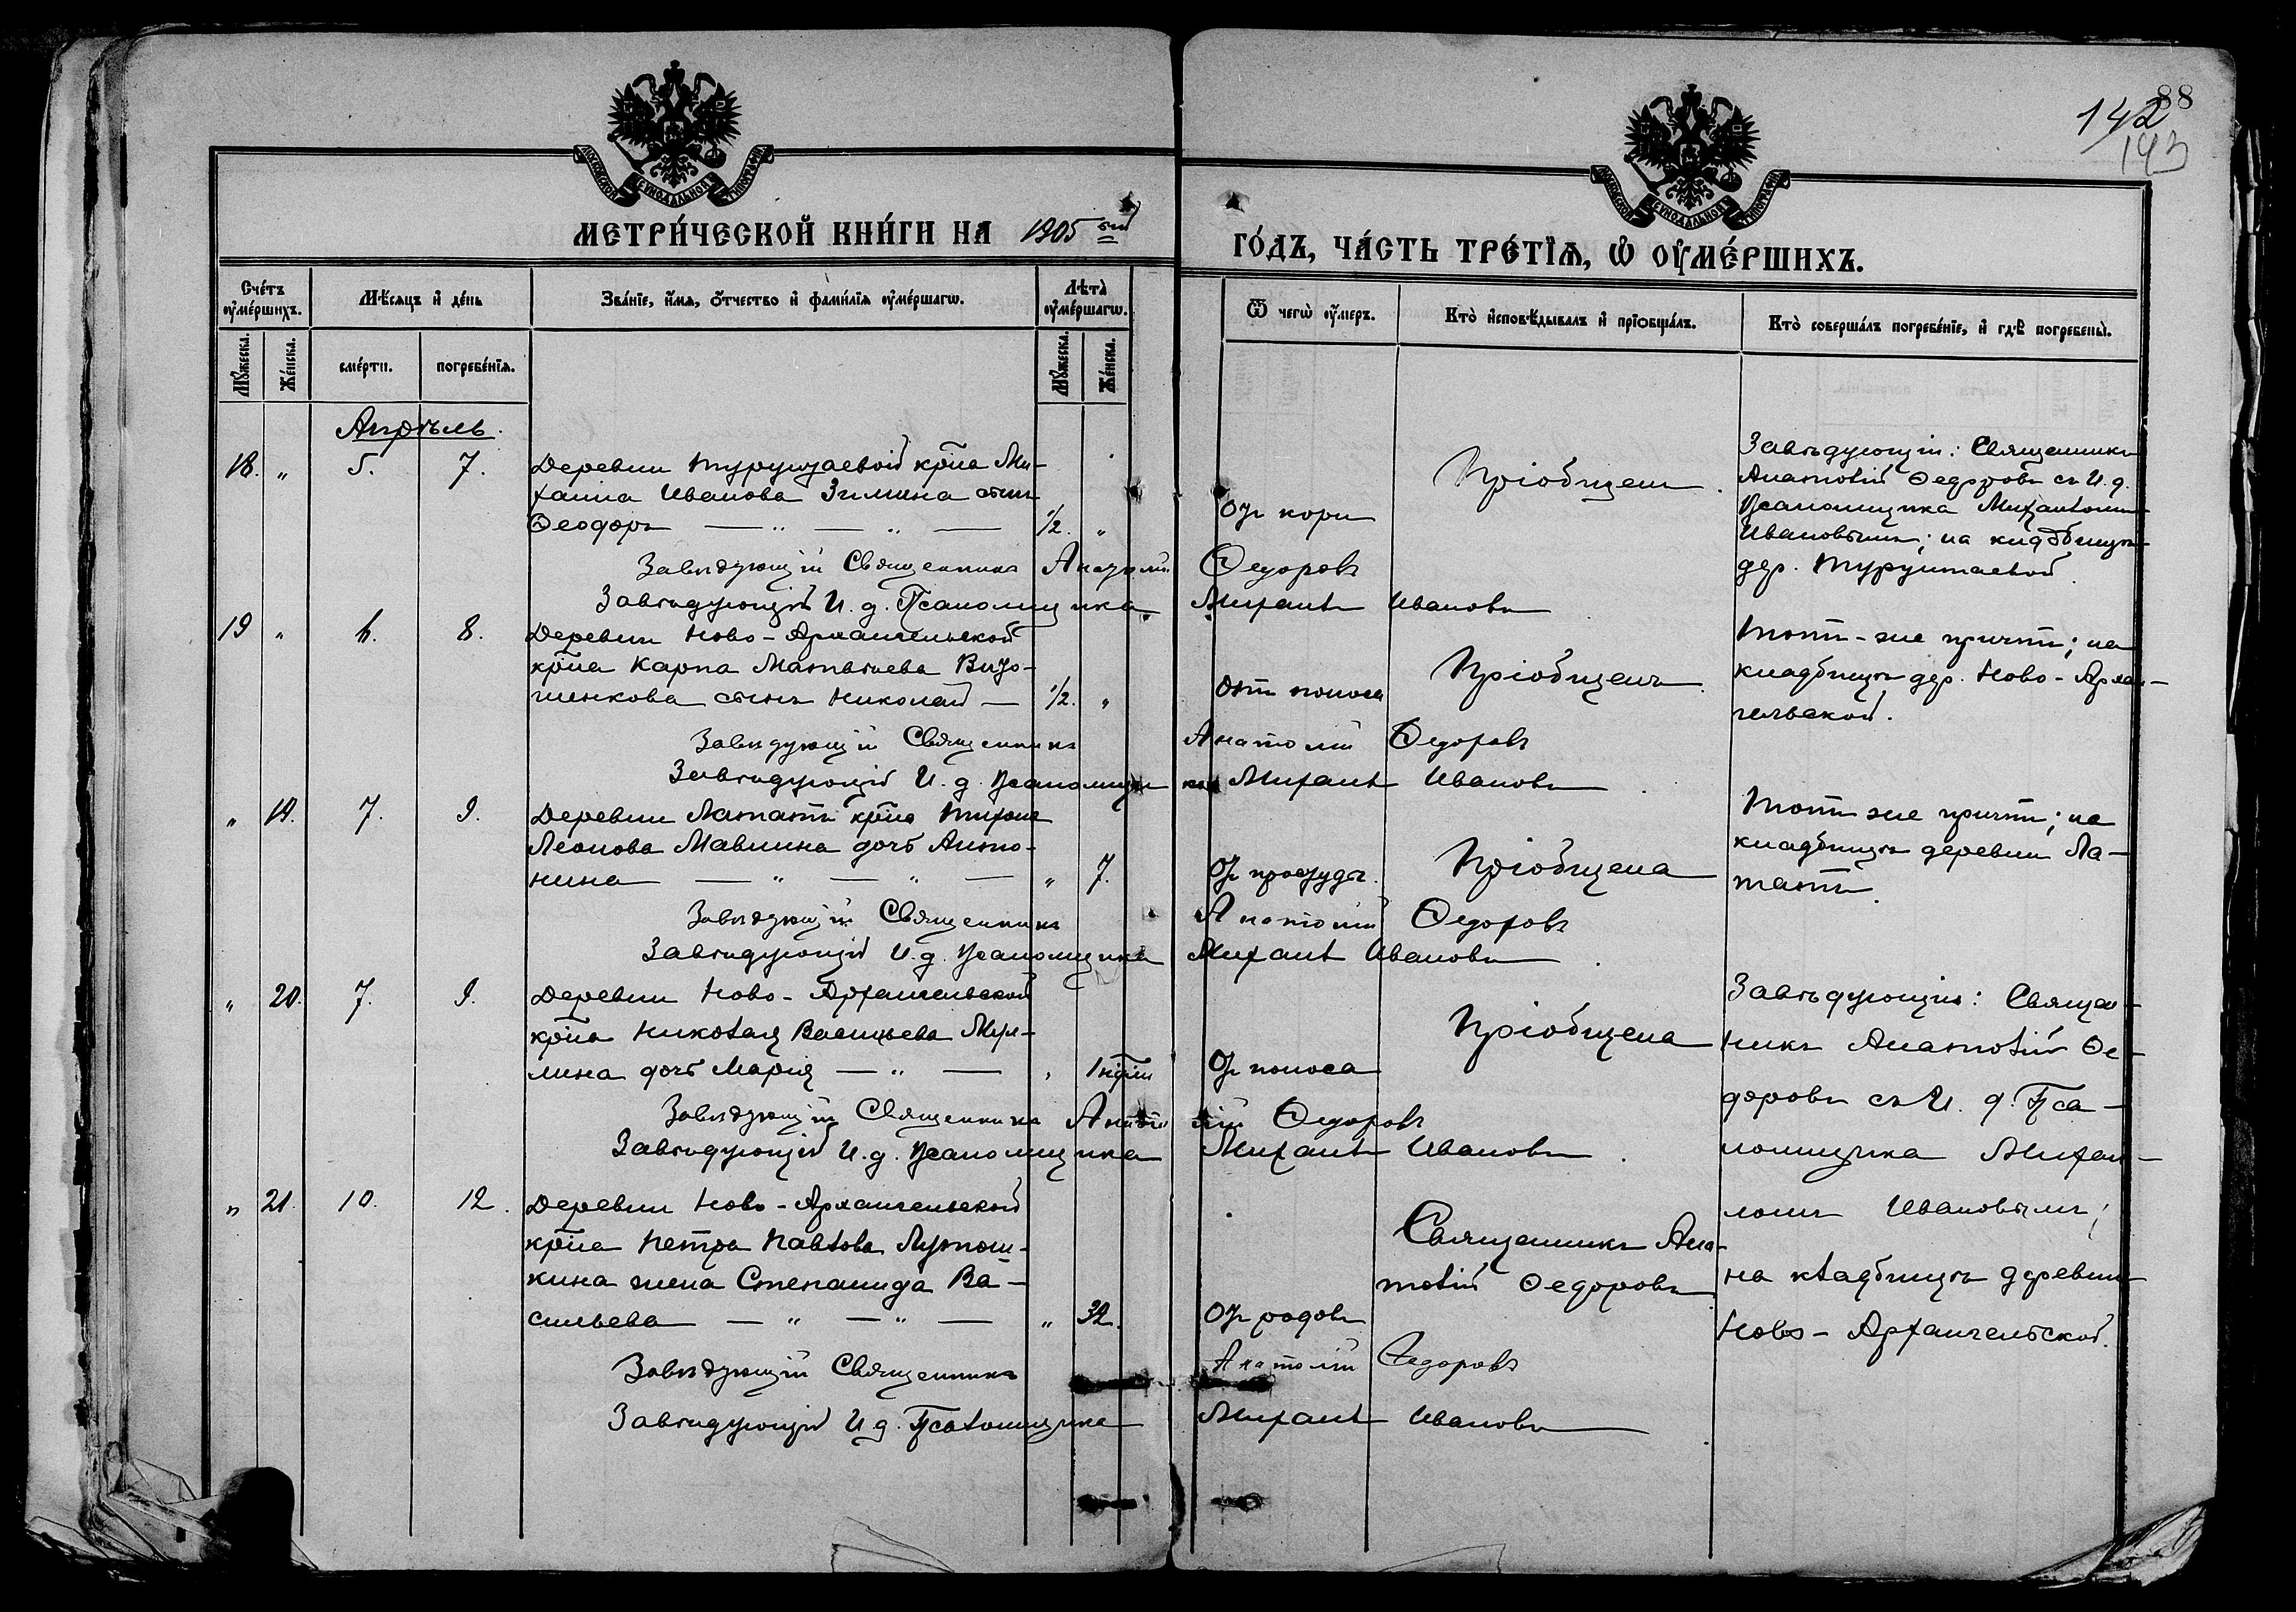 88
142
143
МОСКОВСКОЙ СѴНОДАЛЬНОЙ ТИПОГРАФІИ
МОСКОВСКОЙ СѴНОДАЛЬНОЙ ТИПОГРАФІИ
МЕТРИ́ЧЕСКОЙ КНИ́ГИ НА 1905 ый
ГО́ДЪ, ЧА́СТЬ ТРЕ́ТІѦ, Ѡ ОУ҆МЕ́РШИХЪ.
Сче́тъ оу҆ме́ршихъ.
Мѣ́сѧцъ и҆ де́нь
Зва́нїе, и҆́мѧ, ѻ҆́тчество и҆ фами́лїѧ оу҆ме́ршагѡ.
Лѣ́та оу҆ме́ршагѡ.
Ѿ чегѡ̀ оу҆́меръ.
Кто̀ и҆сповѣ́дывалъ и҆ прїѡбща́лъ.
Кто̀ соверша́лъ погребе́нїе, и҆ гдѣ̀ погребены̀.
Мꙋ́жеска.
Же́нска.
сме́рти.
погребе́нїѧ.
Мꙋ́жеска.
Же́нска.
Апрѣль.
18. " 5. 7. Деревни Турунтаевой крна Ми-
хаила Иванова Зимина сынъ
Ѳеодоръ — " — " — 1/2. "
Отъ кори
Пріобщенъ.
Завѣдующіи: Священникъ
Анатолій Ѳедоровъ съ И. д.
Псаломщика Михаиломъ
Ивановымъ; на кладбищѣ
дер. Турунтаевой.
Завѣдующій Священникъ Анатолій Ѳедоровъ
Завѣдующій И. д. Псаломщика Михаилъ Ивановъ
19 " 6. 8. Деревни Ново-Архангельской
крна Карпа Матвѣева
сынъ Николай — 1/2. "
Отъ поноса
Пріобщенъ.
Тотъ-же причтъ; на
кладбищѣ дер. Ново-Архан-
гельской.
Завѣдующій Священникъ Анатолій Ѳедоровъ
Завѣдующій И. д. Псаломщика Михаилъ Ивановъ
" 19. 7. 9. Деревни Лататъ крна Тихона
Леонова Мавлина дочь Анто-
нина — " — " — " 7.
Отъ простуды.
Пріобщена
Тотъ же причтъ; на
кладбищѣ деревни Ла-
татъ.
Завѣдующій Священникъ Анатолій Ѳедоровъ
Завѣдующій И. д. Псаломщика Михаилъ Ивановъ
" 20. 7. 9. Деревни Ново-Архангельской
крна Николая Васильева
дочь Марія — " — "
Отъ поноса
Пріобщена
Завѣдующіе: Священ-
никъ Анатолій Ѳе-
доровъ съ И. д. Пса-
ломщика Михаи-
ломъ Ивановымъ;
на кладбищѣ деревни
Ново-Архангельской.
Завѣдующій Священникъ Анатолій Ѳедоровъ
Завѣдующій И. д. Псаломщика Михаилъ Ивановъ
" 21. 10. 12. Деревни Ново-Архангельской
крна Петра Павлова Лутош-
кина жена Степанида Ва-
сильева — " — " — " 32.
Отъ родовъ
Священникъ Ана-
толій Ѳедоровъ.
Завѣдующій Священникъ Анатолій Ѳедоровъ
Завѣдующій И. д. Псаломщика Михаилъ Ивановъ